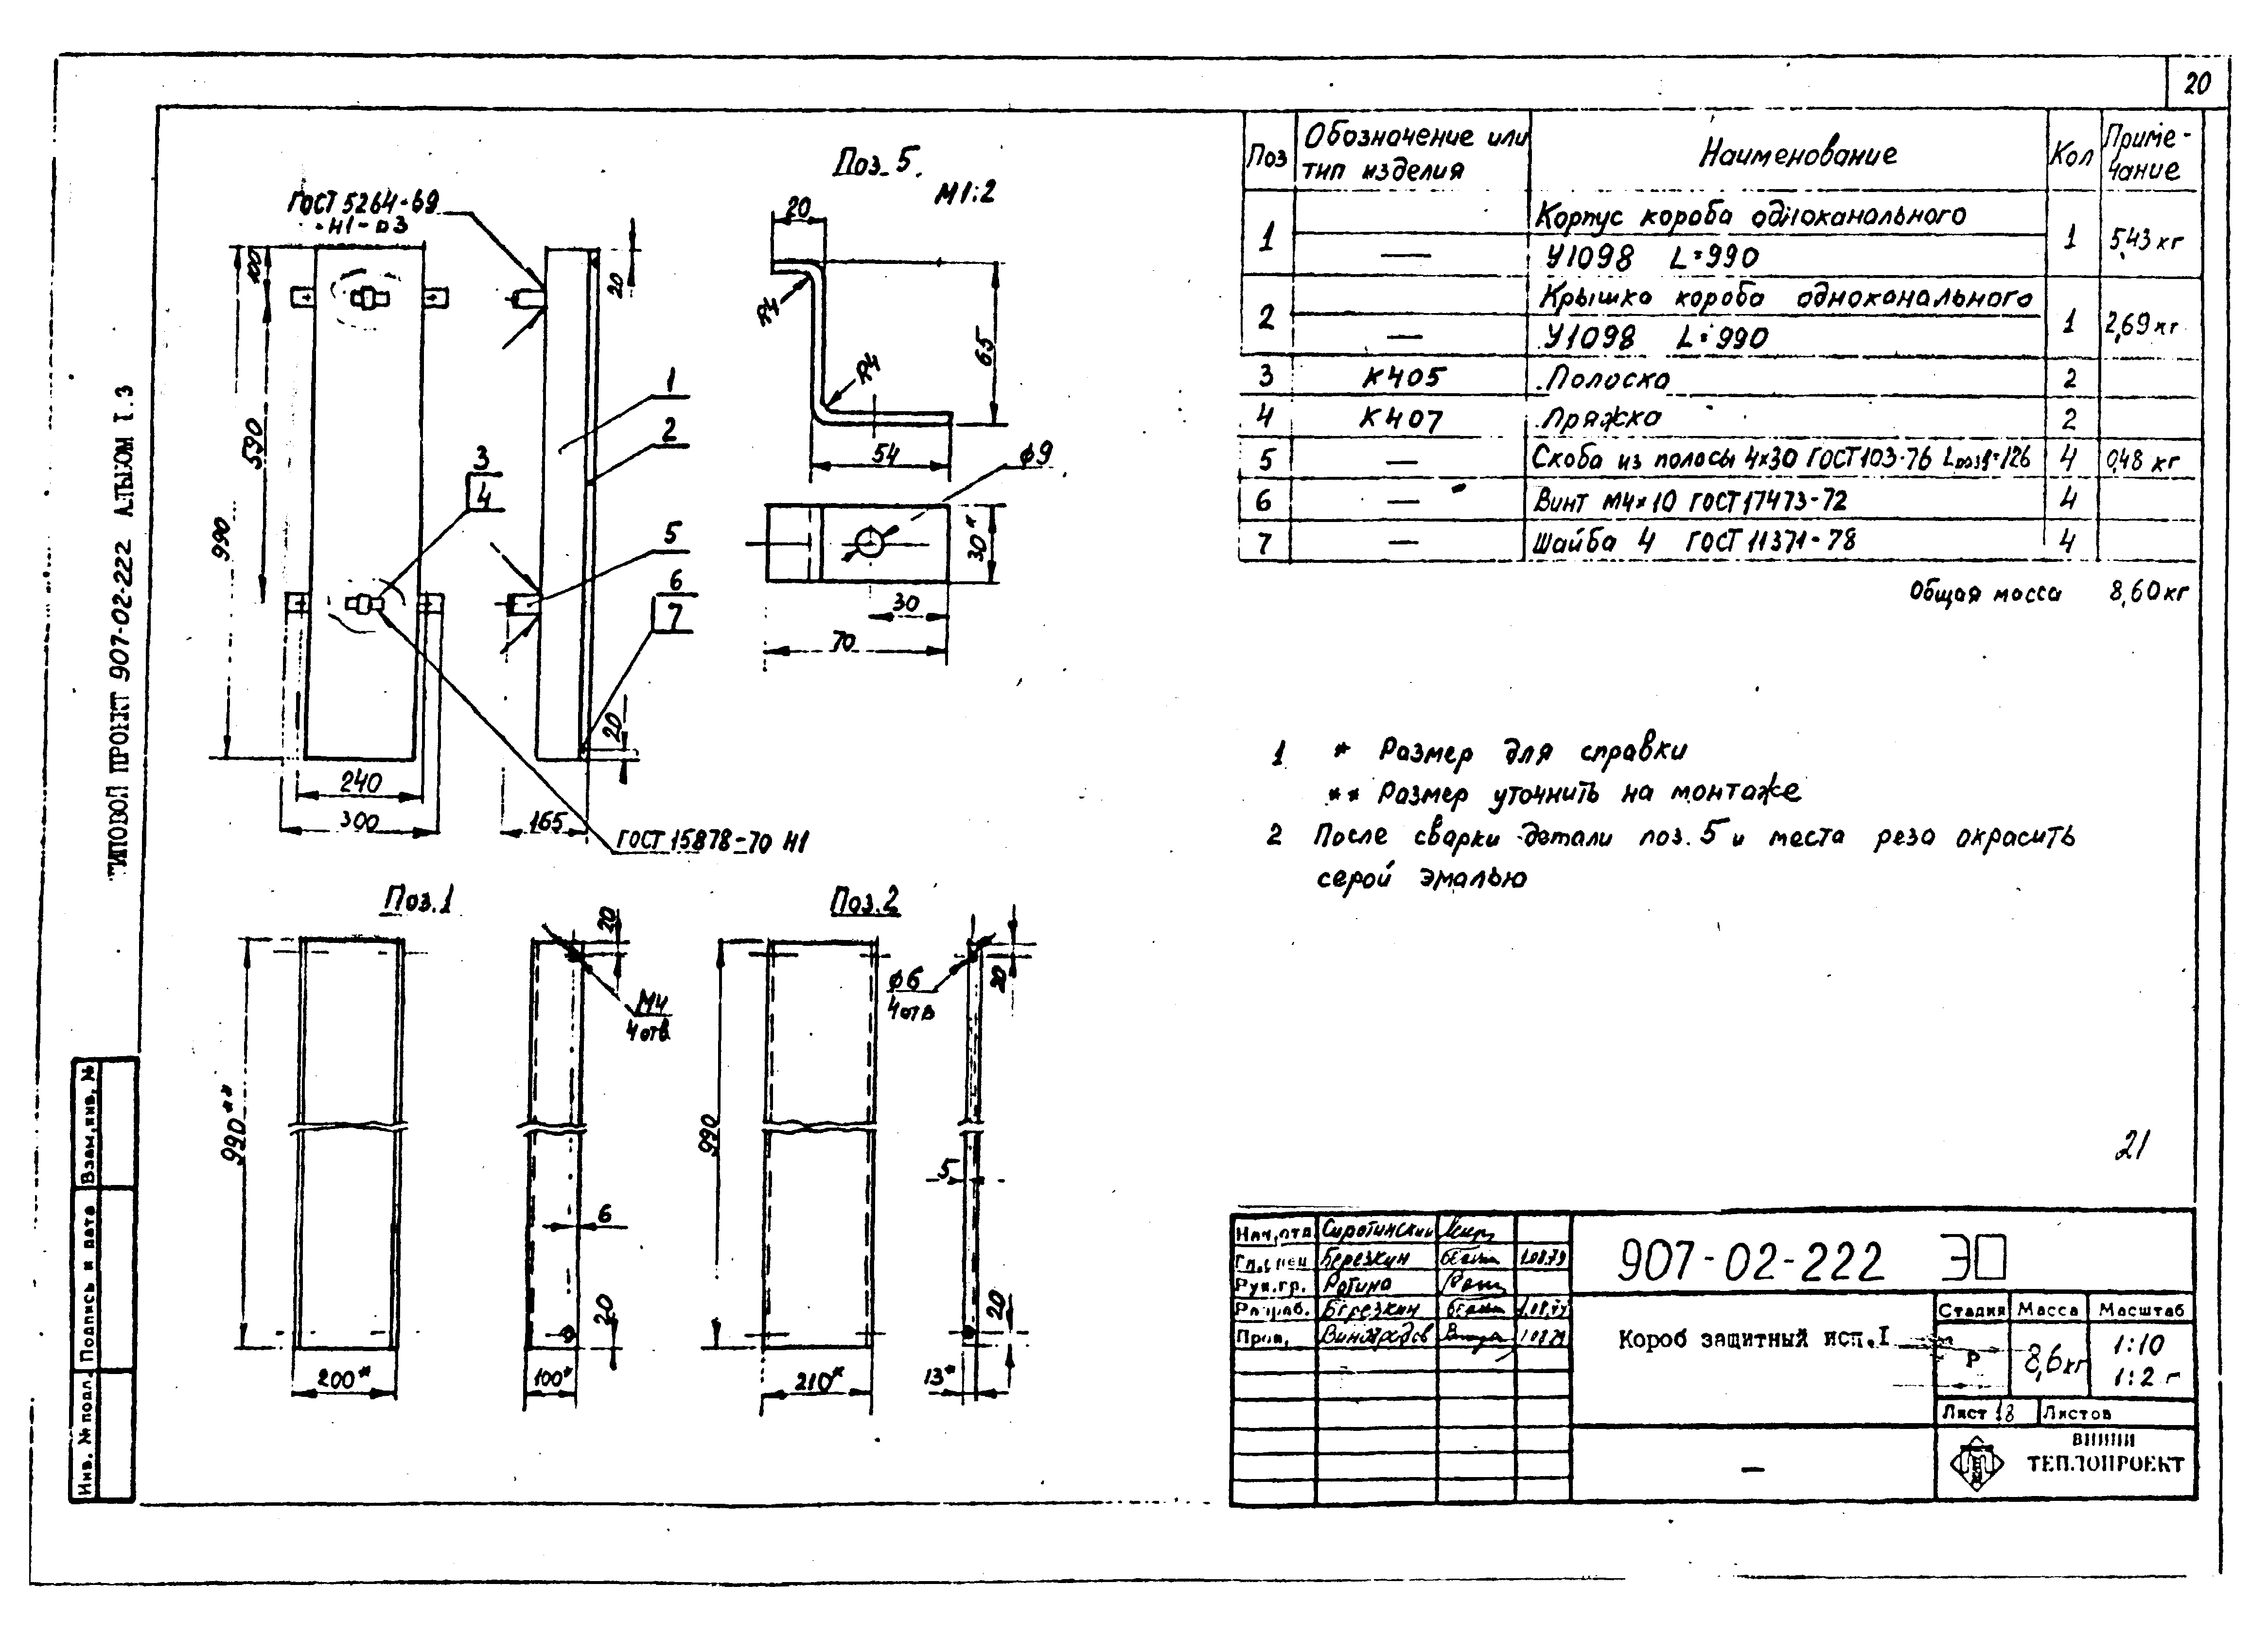 20
ТИПОВОЙ ПРОЕКТ 907-02-222 АЛЬБОМ I.3
Поз. 5
М1:2
ГОСТ 5264-69
Н1-
100
590
990
240
300
20
1
2
3
4
5
6
7
20
165
ГОСТ 15878-70 Н1
20
R4
R4
65
54
ϕ9
30*
30
70
Поз.1
990**
200*
20
М4
4 отв
6
20
100*
Поз.2
990
210*
ϕ6
4 отв
20
5
20
13*
Поз Обозначение или тип изделия Наименование Кол Приме-чание
1 Корпус короба одноканального 1 5,43 кг
— У1098 L=990
2 Крышка короба одноканального 1 2,69 кг
— У1098 L=990
3 К405 Полоска 2
4 К407 Пряжка 2
5 — Скоба из полосы 4×30 ГОСТ 103-76 Lразв=126 4 0,48 кг
6 — Винт М4×10 ГОСТ 17473-72 4
7 — Шайба 4 ГОСТ 11371-78 4
Общая масса 8,60 кг
1 * Размер для справки
** Размер уточнить на монтаже
2 После сварки детали поз. 5 и места реза окрасить
серой эмалью
21
Нач.отд Сиротинский
Гл.спец Березкин 1.08.79
Рук.гр.
Разраб. Березкин
Пров. Виноградов 1.08.79
907-02-222 ЭП
Короб защитный исп.I
Стадия Масса Масштаб
Р 8,6кг 1:10
1:2
Лист 18 Листов
—
ВНИПИ
ТЕПЛОПРОЕКТ
Взам.инв. №
Подпись и дата
Инв. № подл.